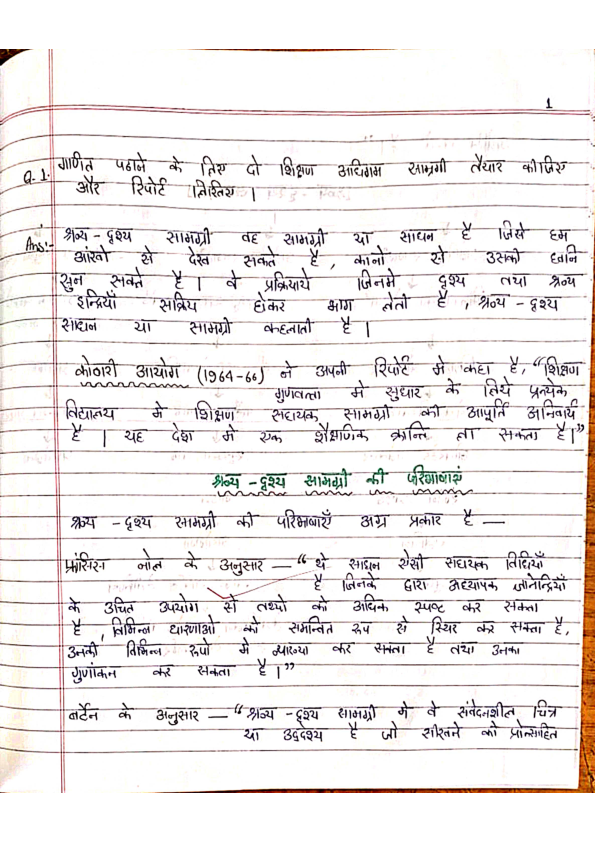 1
Q.1. गणित पढाने के लिए दो शिक्षण अधिगम सामग्री तैयार कीजिए
और रिपोर्ट लिखिए |
Ans:- श्रव्य - दृश्य सामग्री वह सामग्री या साधन है जिसे हम
आंखो से देख सकते है , कानो से उसकी ध्वनि
सुन सकते है | वे प्रक्रियाये जिनमे दृश्य तथा श्रव्य
इन्द्रियाँ सक्रिय होकर भाग लेती है , श्रव्य - दृश्य
साधन या सामग्री कहलाती है |
कोठारी आयोग (1964-66) ने अपनी रिपोर्ट मे कहा है, “शिक्षण
गुणवत्ता मे सुधार के लिये प्रत्येक
विद्यालय मे शिक्षण सहायक सामग्री की आपूर्ति अनिवार्य
है | यह देश मे एक शैक्षणिक क्रान्ति ला सकता है|”
श्रव्य - दृश्य सामग्री की परिभाषाएं
श्रव्य - दृश्य सामग्री की परिभाषाएँ अग्र प्रकार है —
फ्रांसिस नोल के अनुसार — “ थे साधन ऐसी सहायक विधियाँ
है जिनके द्वारा अध्यापक ज्ञानेन्द्रियाँ
के उचित उपयोग से तथ्यो को अधिक स्पष्ट कर सकता
है , विभिन्न धारणाओ को समन्वित रूप से स्थिर कर सकता है ,
उनकी विभिन्न रूपो मे व्याख्या कर सकता है तथा उनका
गुणांकन कर सकता है |”
बर्टन के अनुसार — “ श्रव्य - दृश्य सामग्री मे वे संवेदनशील चित्र
या उद्देश्य है जो सीखने को प्रोत्साहित